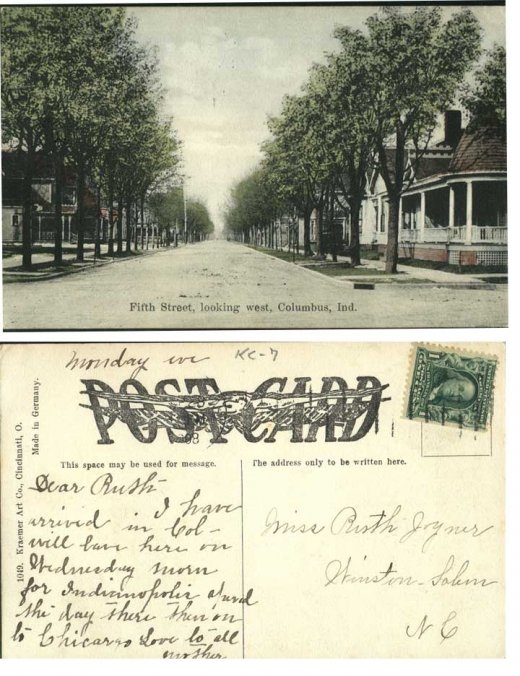 Fifth Street, looking west, Columbus, Ind.
Monday eve
KC-7
POST CARD
This space may be used for message.
The address only to be written here.
1049. Kraemer Art Co., Cincinnati, O.
Made in Germany.
Dear Ruth
I have
arrived in Col-
will leave here on
Wednesday morn
for Indiannopolis
the day there then on
to Chicargo Love to all
mother
Miss Ruth Joyner
Winston-Salem
N C